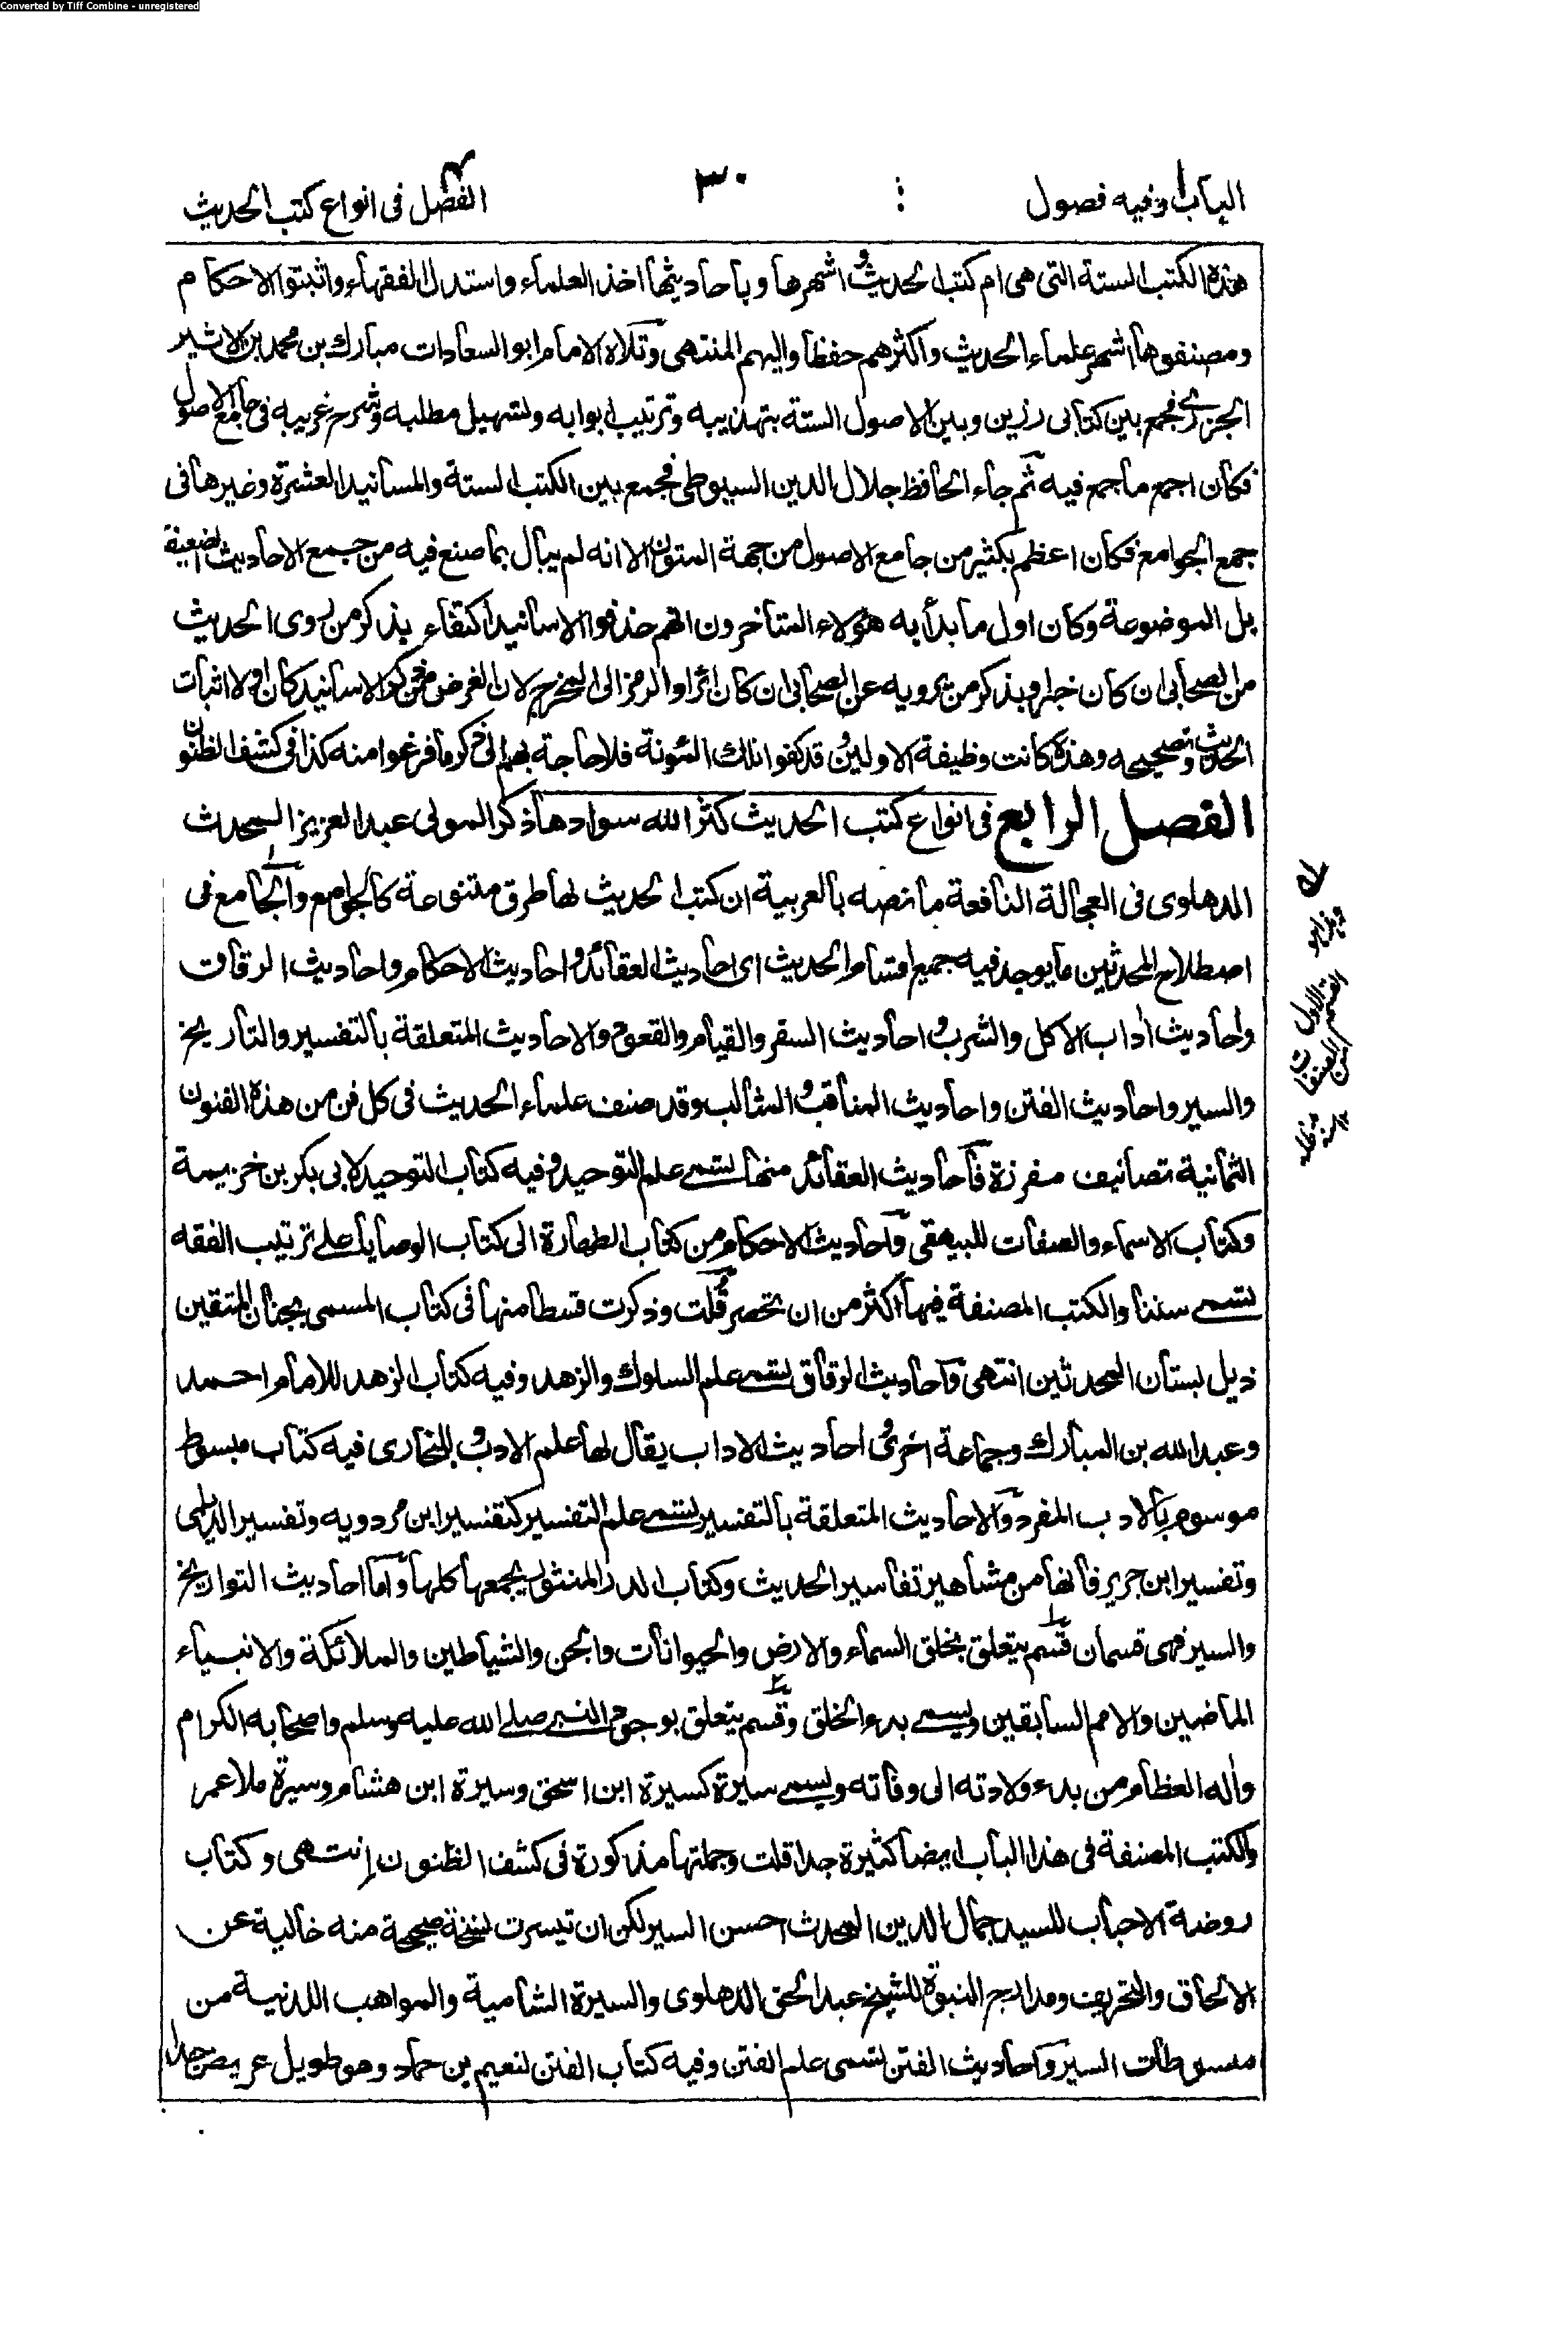 Converted by Tiff Combine - unregistered
الباب وفيه فصول
٣٠
الفصل فى انواع كتب الحديث
هذه الكتب الستة التى هى ام كتب الحديث واشهرها وباحاديثها اخذ العلماء واستدل الفقهاء واثبتوا الاحكام
ومصنفوها اشهر علماء الحديث واكثرهم حفظا واليهم المنتهى وتلاه الامام ابو السعادات مبارك بن محمد بن الاثير
الجزرى فجمع بين كتابى رزين وبين الاصول الستة بتهذيبه وترتيب ابوابه وتسهيل مطلبه وشرح غريبه فى جامع الاصول
فكان اجمع ما جمع فيه ثم جاء الحافظ جلال الدين السيوطى فجمع بين الكتب الستة والمسانيد العشرة وغيرها فى
جمع الجوامع فكان اعظم بكثير من جامع الاصول من جهة المتون الا انه لم يبال بما صنع فيه من جمع الاحاديث الضعيفة
بل الموضوعة وكان اول ما بدأ به هؤلاء المتاخرون انهم حذفوا الاسانيد اكتفاء بذكر من روى الحديث
من الصحابى ان كان خبرا وبذكر من يرويه عن الصحابى ان كان اثرا والرمز الى المخرج لان الغرض من ذكر الاسانيد كان اولا اثبات
الحديث وتصحيحه وهذه كانت وظيفة الاولين وقد كفوا تلك المئونة فلا حاجة بهم الى ذكر ما فرغوا منه كذا فى كشف الظنون
الفصل الرابع فى انواع كتب الحديث كثر الله سوادها ذكر المولى عبد العزيز المحدث
الدهلوى فى العجالة النافعة ما نصه بالعربية ان كتب الحديث لها طرق متنوعة كالجوامع والجامع فى
اصطلاح المحدثين ما يوجد فيه جميع اقسام الحديث اى احاديث العقائد واحاديث الاحكام واحاديث الرقاق
واحاديث اداب الاكل والشرب واحاديث السفر والقيام والقعود والاحاديث المتعلقة بالتفسير والتاريخ
والسير واحاديث الفتن واحاديث المناقب والمثالب وقد صنف علماء الحديث فى كل فن من هذه الفنون
الثمانية تصانيف مفرزة فاحاديث العقائد منها تسمى علم التوحيد وفيه كتاب التوحيد لابى بكر بن خزيمة
وكتاب الاسماء والصفات للبيهقى واحاديث الاحكام من كتاب الطهارة الى كتاب الوصايا على ترتيب الفقه
تسمى سننا والكتب المصنفة فيها اكثر من ان تحصر قلت وذكرت قسطا منها فى كتاب المسمى بجنان المتقين
ذيل بستان المحدثين انتهى واحاديث الرقاق تسمى علم السلوك والزهد وفيه كتاب الزهد للامام احمد
وعبد الله بن المبارك وجماعة اخرى واحاديث الاداب يقال لها علم الادب وللبخارى فيه كتاب مبسوط
موسوم بالادب المفرد والاحاديث المتعلقة بالتفسير تسمى علم التفسير كتفسير ابن مردويه وتفسير الديلمى
وتفسير ابن جرير فانها من مشاهير تفاسير الحديث وكتاب الدر المنثور يجمعها كلها واما احاديث التواريخ
والسير فهى قسمان قسم يتعلق بخلق السماء والارض والحيوانات والجن والشياطين والملائكة والانبياء
الماضين والامم السابقين ويسمى بدء الخلق وقسم يتعلق بوجود النبى صلى الله عليه وسلم واصحابه الكرام
واله العظام من بدء ولادته الى وفاته ويسمى سيرة كسيرة ابن اسحق وسيرة ابن هشام وسيرة ملا عمر
والكتب المصنفة فى هذا الباب ايضا كثيرة جدا قلت وجملتها مذكورة فى كشف الظنون انتهى وكتاب
روضة الاحباب للسيد جمال الدين المحدث احسن السير لكن ان تيسرت نسخة صحيحة منه خالية عن
الالحاق والتحريف ومدارج النبوة للشيخ عبد الحق الدهلوى والسيرة الشامية والمواهب اللدنية من
مبسوطات السير واحاديث الفتن تسمى علم الفتن وفيه كتاب الفتن لنعيم بن حماد وهو طويل عريض جدا
القسم الاول
من المصنفات